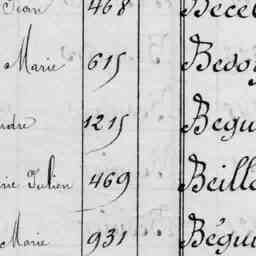 Jean 468 Bece
Marie 615 Bedo
dre 1215 Begu
rie Julien 469 Beill
Marie 931 Bégui